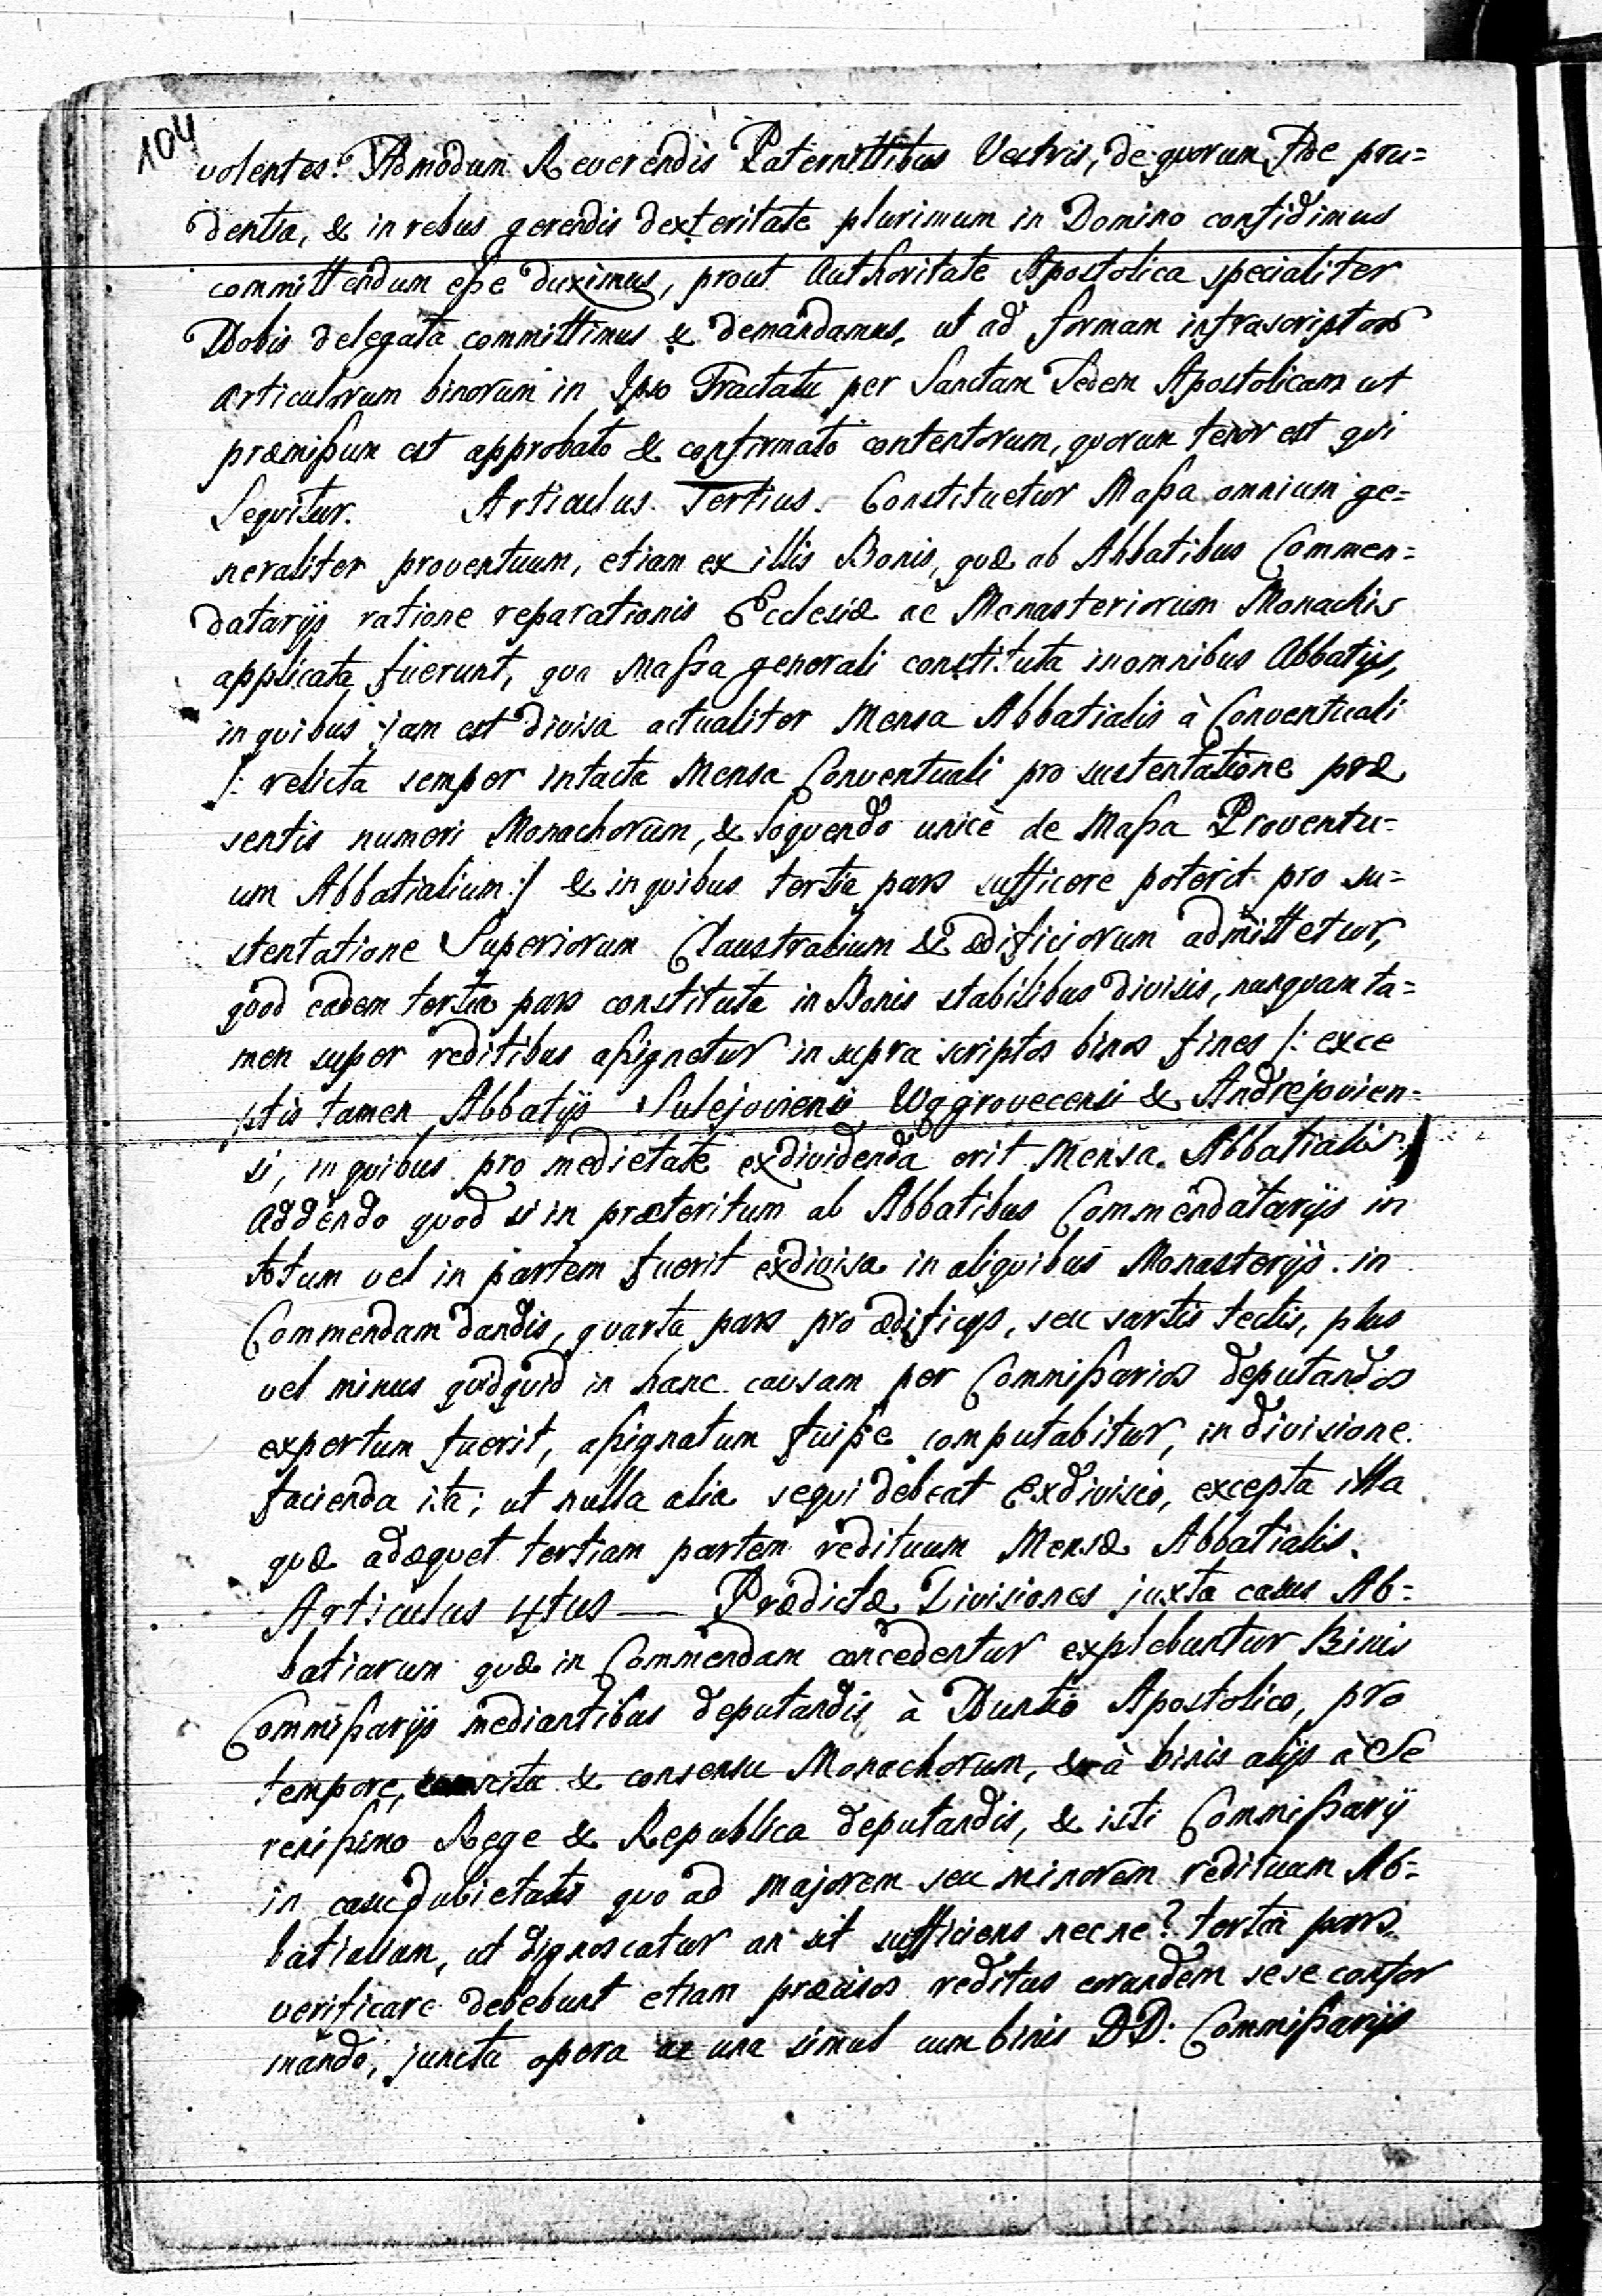 104
volentes. Admodum Reverendis Paternittibus Vestris, de quorum fide pru=
dentia, & in rebus gerendis dexteritate plurimum in Domino confidimus
committendum eße duximus, prout Authoritate Apostolica specialiter
Nobis delegata committimus & demandamus, ut ad formam infrascriptor
articulorum binorum in Ipso Tractatu per Sanctam Sedem Apostolicam ut
præmißum est approbato & confirmato contentorum, quorum tenor est qui
Sequitur. Articulus Tertius. Constituetur Maßa omnium ge=
neraliter proventuum, etiam ex illis Bonis, quæ ab Abbatibus Commen=
datarijs ratione reparationis Ecclesiæ ac Monasteriorum Monachis
applicata fuerunt, qua Maßa generali constituta in omnibus Abbatijs,
in quibus jam est divisa actualiter Mensa Abbatialis à Conventuali
/: relicta semper intacta Mensa Conventuali pro sustentatione præ
sentis numeri Monachorum, & loquendo unicè de Maßa Proventu=
um Abbatialium :/ & in quibus tertia pars sufficere poterit pro su=
stentatione Superiorum Claustralium & ædificiorum admittetur,
quod eadem tertia pars constituta in Bonis stabilibus divisis, nunquam ta=
men super reditibus aßignetur in supra scriptos binos fines /: exce
ptis tamen Abbatijs Sulejoviensi Wągrovecensi & Andrejovien=
si, in quibus pro medietate exdividenda erit Mensa Abbatialis :/
addendo quod si in præteritum ab Abbatibus Commendatarijs in
totum vel in partem fuerit exdivisa in aliquibus Monasterijs in
Commendam dandis, quarta pars pro ædificijs, seu sartis tectis, plus
vel minus quidquid in hanc causam per Commißarios deputandos
expertum fuerit, aßignatum fuiße computabitur, in divisione
facienda ita; ut nulla alia sequi debeat Exdivisio, excepta illa
quæ adæquet tertiam partem redituum Mensæ Abbatialis.
Articulus 4tus — Prædictæ Divisiones juxta casus Ab=
batiarum quæ in Commendam concedentur explebuntur Binis
Commißarijs mediantibus deputandis à Nuntio Apostolico, pro
tempore, scita & consensu Monachorum, & à binis alijs à Se
renißimo Rege & Republica deputandis, & isti Commißarij
in casu dubietatis quo ad majorem seu minorem redituum Ab=
batialium, ut dignoscatur an sit sufficiens necne? tertia pars
verificare debebunt etiam præcisos reditus eorundem sese confor
mando, juncta opera ac una simul cum binis DD: Commißarijs